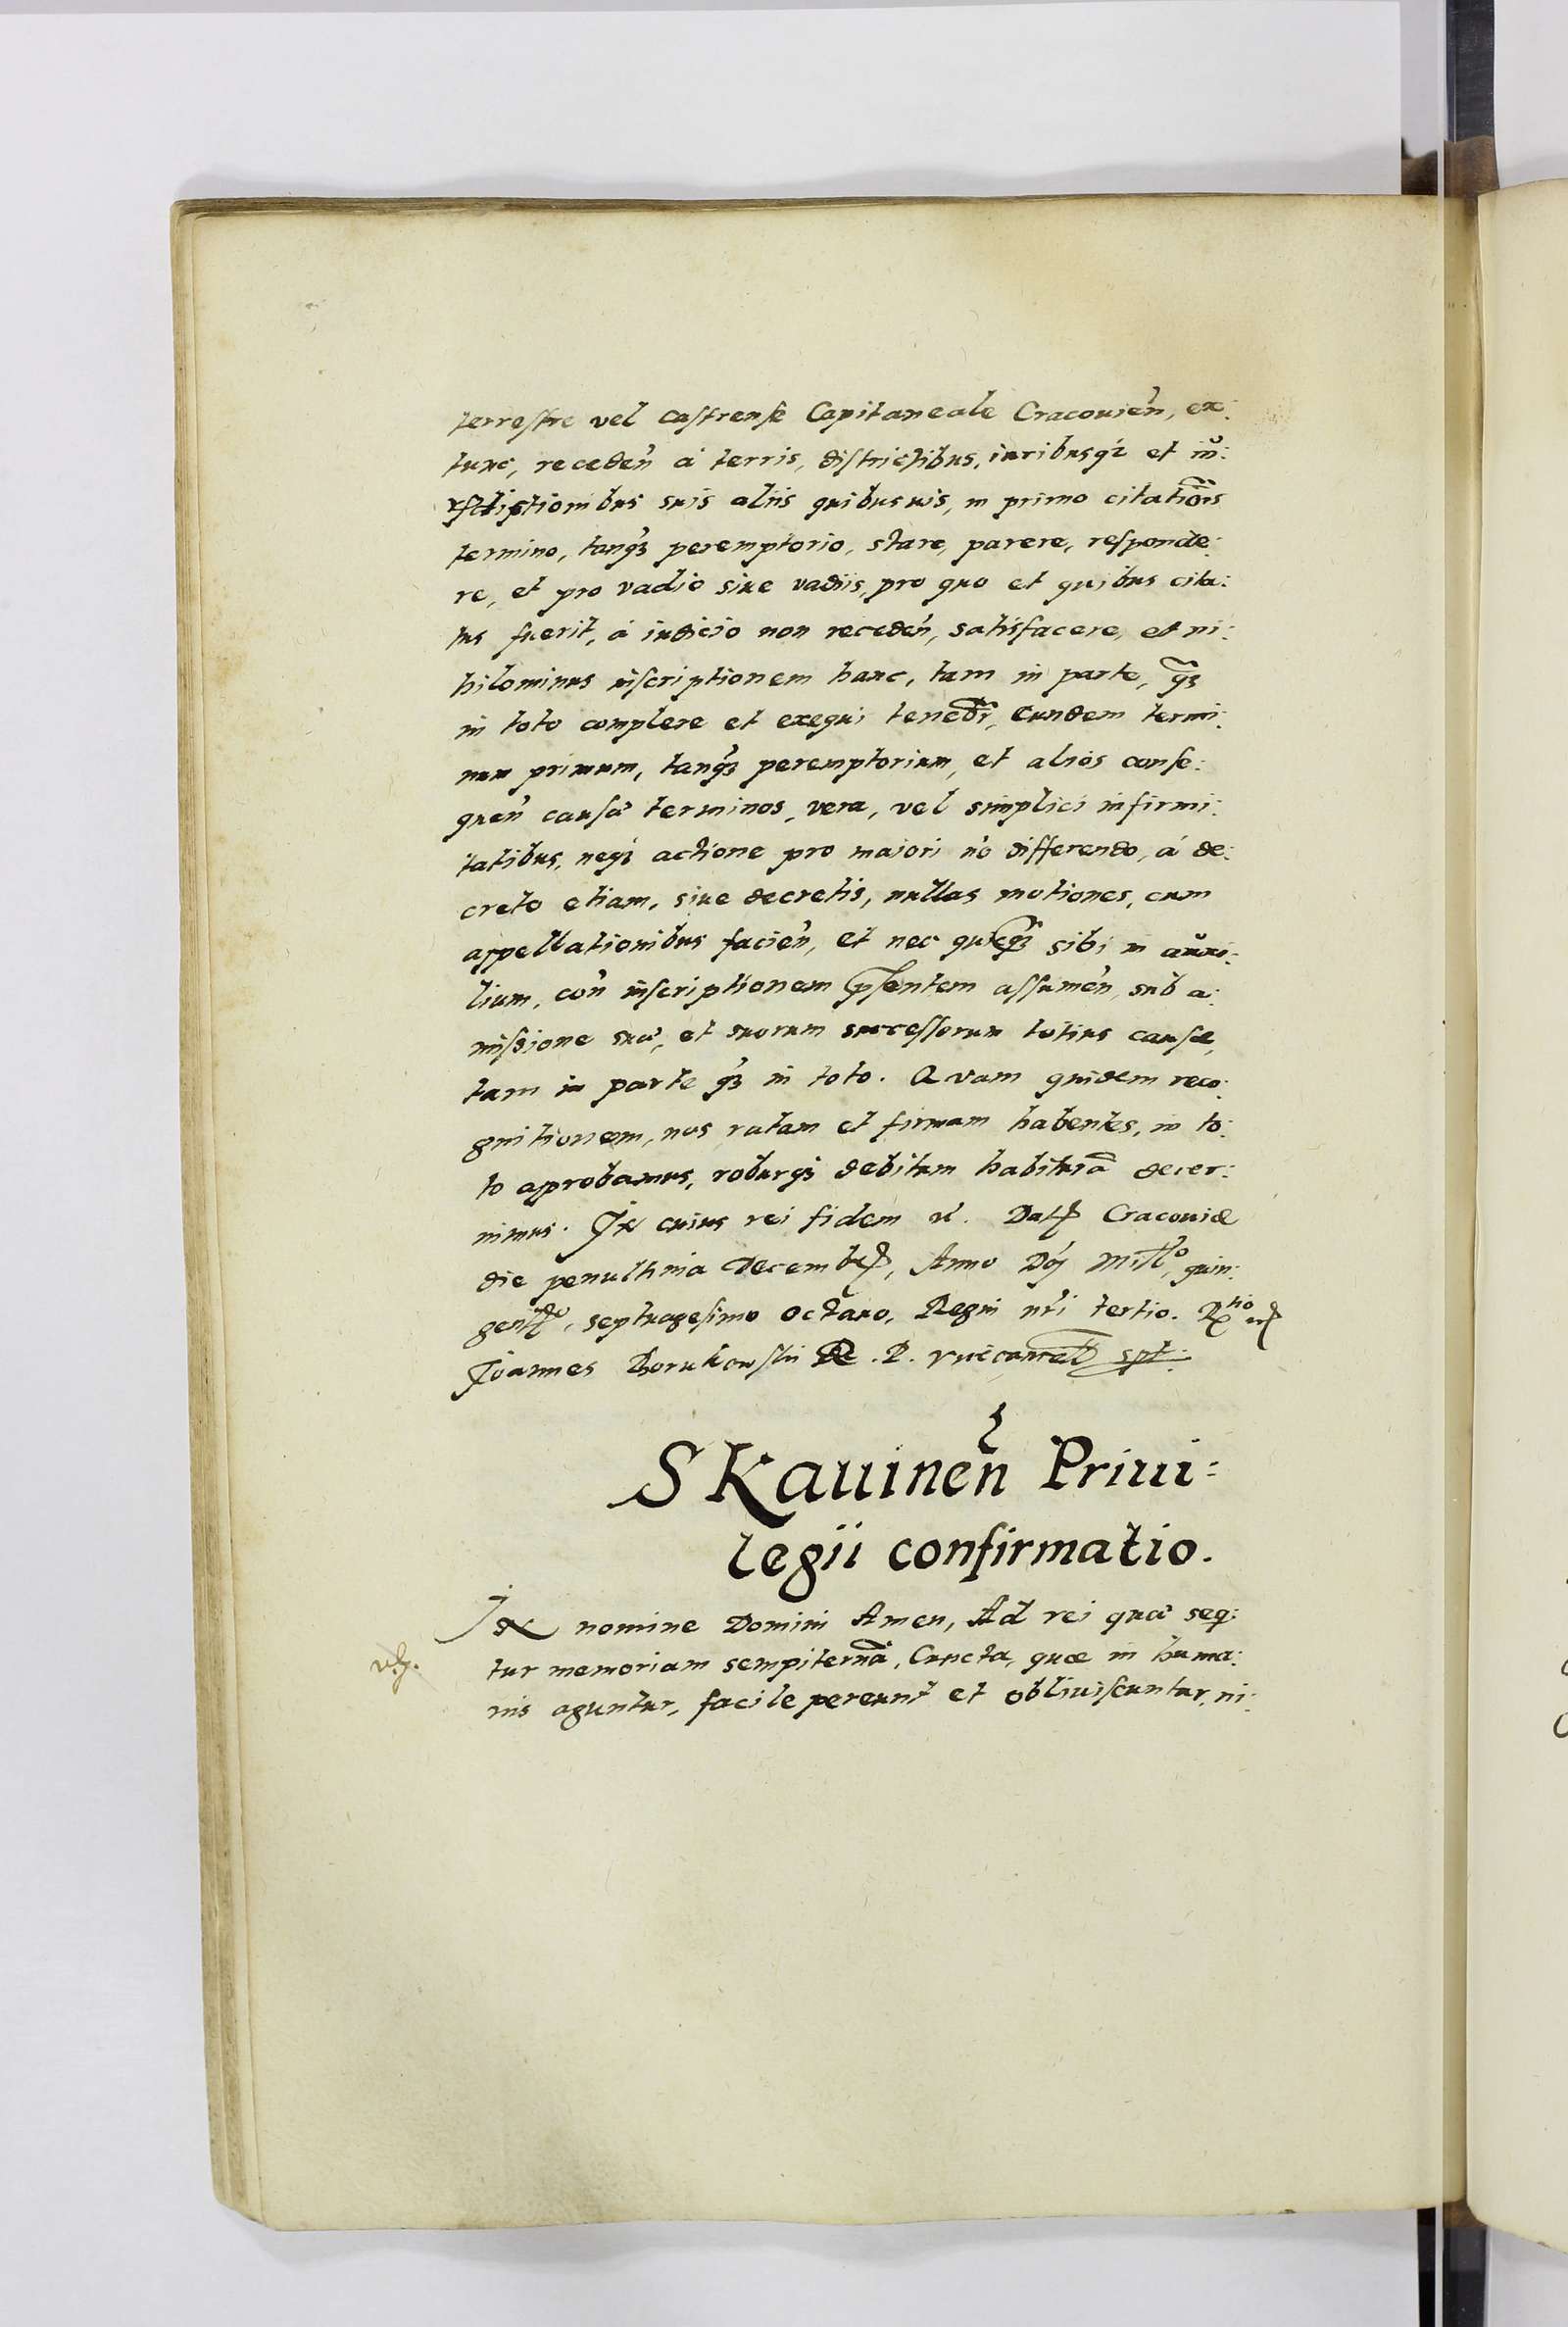 terrestre vel castrense Capitaneale Cracouien̄, ex:
tunc, receden̄ á terris, districtibus, iuribusq́ꝫ et iu:
risdiptionibus suis aliis quibusuis, in primo citatiõis
termino, tanq̃ꝫ peremptorio, stare, parere, responde:
re, et pro vadio siue vadiis, pro quo et quibus cita:
tus fuerit, á iudicio non receden̄, satisfacere, et ni:
hilominus inscriptionem hanc, tam in parte, q̃ꝫ
in toto complere et exequi teneb̃r, eundem termi:
num primum, tanq̃ꝫ peremptorium, et alios conse:
quen̄ causæ terminos, vera, vel simplici infirmi:
tatibus, neqꝫ actione pro maiori nõ differendo, á de:
creto etiam, siue decretis, nullas motiones, cum
appellationibus facien̄, et nec quicq̃ꝫ sibi in auxi:
lium, con̄ inscriptionem p̃sentem assumen̄, sub a:
missione suæ, et suorum successorum totius causæ,
tam in parte q̃ꝫ in toto. Quam quidem reco:
gnitionem, nos ratam et firmam habentes, in to:
to aprobamus, roburqꝫ debitum habiturã decer:
nimus. In cuius rei fidem ꝛc. Datꝭ Cracouiæ
die penultima Decembꝭ, Anno Dn̄i Mill̃o, quin:
gent̃o, septuagesimo octauo, Regni nr̃i tertio. R̃tio
Joannes Borukowski R. P. vicecancel̃ spt:
SKauinen̄ Priui:
legii confirmatio.
IN nomine Domini Amen, Ad rei quæ seq:
tur memoriam sempiternã, Cuncta, quæ in huma:
nis aguntur, facile pereunt et obliuiscuntur, ni: